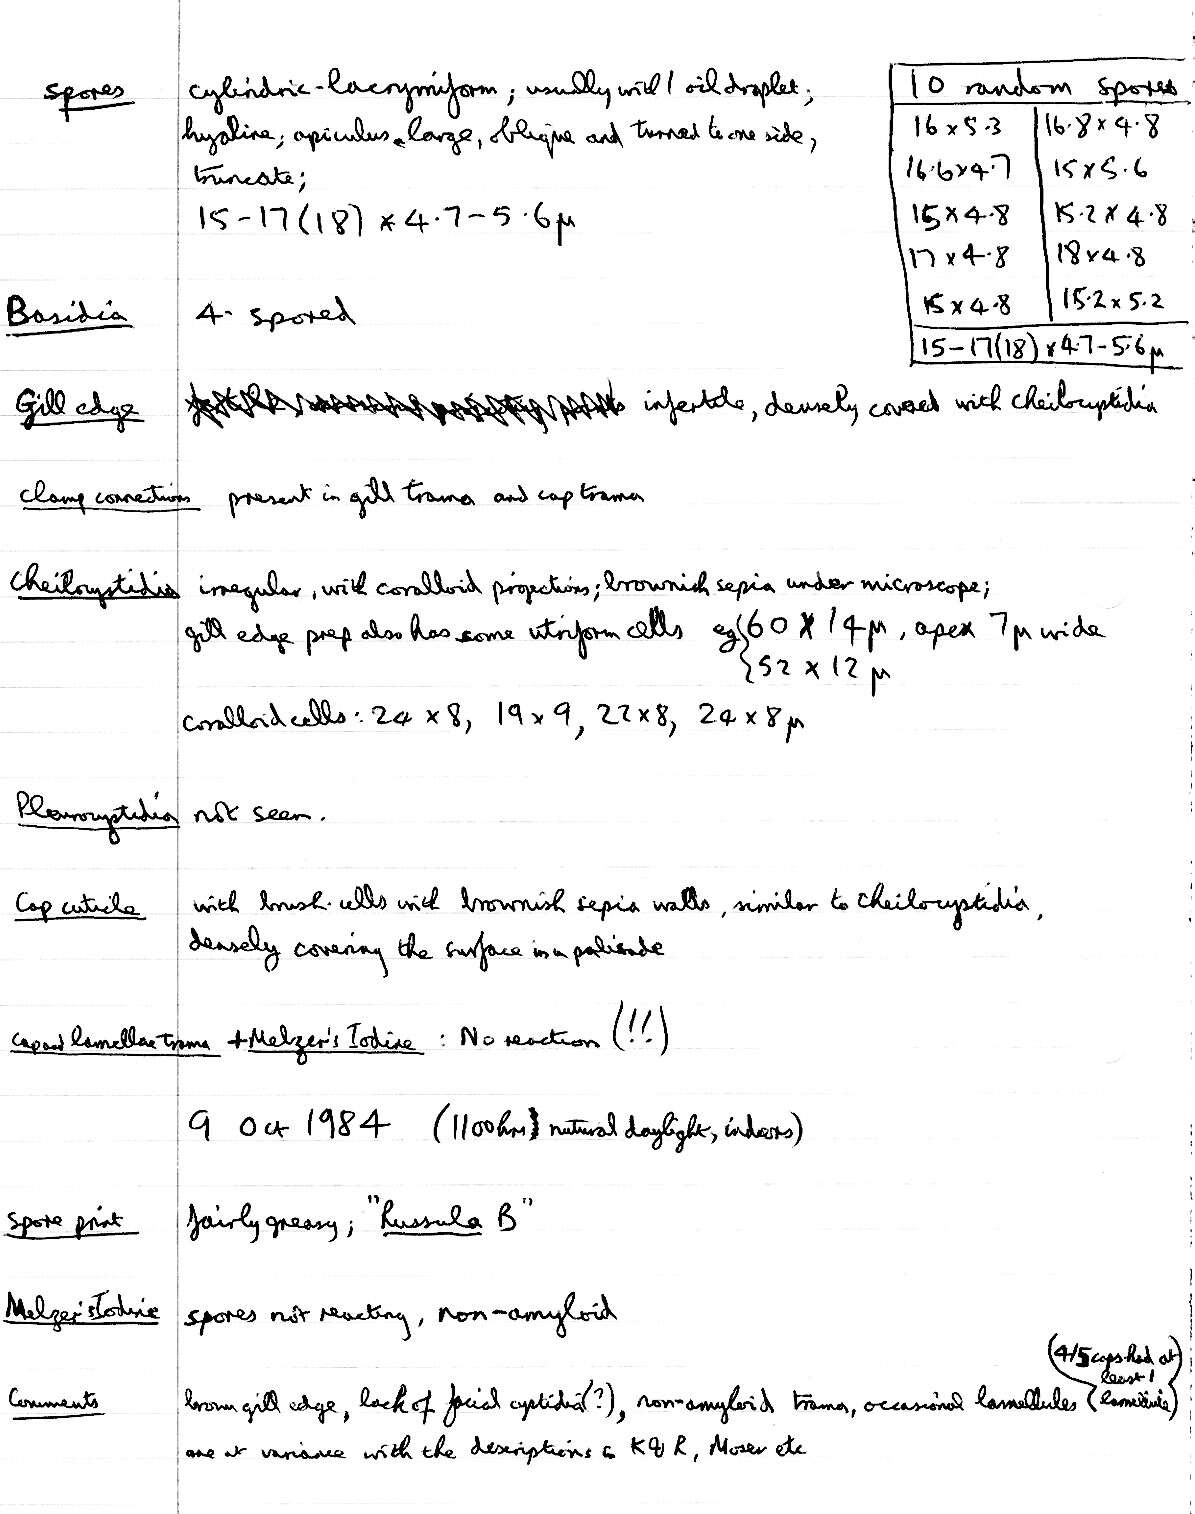 spores cylindric-lacrymiform; usually with 1 oil droplet;
hyaline; apiculus large, oblique and turned to one side,
truncate;
15-17(18) × 4.7-5.6µ
10 random spores
16 × 5.3 16.8 × 4.8
16.6 × 4.7 15 × 5.6
15 × 4.8 15.2 × 4.8
17 × 4.8 18 × 4.8
15 × 4.8 15.2 × 5.2
15-17(18) × 4.7-5.6µ
Basidia 4-spored
Gill edge infertile, densely covered with cheilocystidia
Clamp connections present in gill trama and cap trama
Cheilocystidia irregular, with coralloid projections; brownish sepia under microscope;
gill edge prep also has some utriform cells eg { 60 × 14µ, apex 7µ wide
{ 52 × 12µ
coralloid cells: 24 × 8, 19 × 9, 22 × 8, 24 × 8µ
Pleurocystidia not seen.
Cap cuticle with brush-cells with brownish sepia walls, similar to cheilocystidia,
densely covering the surface in a palisade
Cap and lamellae trama + Melzer's Iodine : No reaction (!!)
9 Oct 1984 (1100hrs) natural daylight, indoors)
Spore print fairly greasy; "Russula B"
Melzer's Iodine spores not reacting, non-amyloid
(4/5 caps had at
least 1
Comments brown gill edge, lack of facial cystidia(?), non-amyloid trama, occasional lamellules
are at variance with the descriptions in K & R, Moser etc